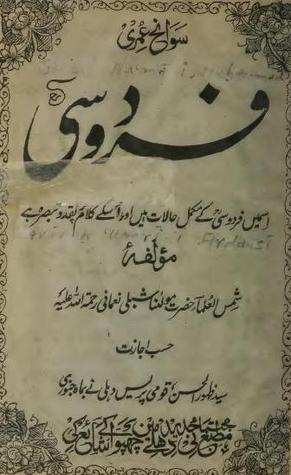 سوانح عمری
فردوسیؒ
اسمیں فردوسی کے مکمل حالات ہیں اور اسکے کلام پر نقد و تبصرہ ہے
مؤلفۂ
شمس العلماء حضرت مولٰنا شبلی نعمانی رحمۃ اللہ علیہ
حسب اجازت
سید ظہور الحسن قومی پریس دہلی نے بماہ جنوری